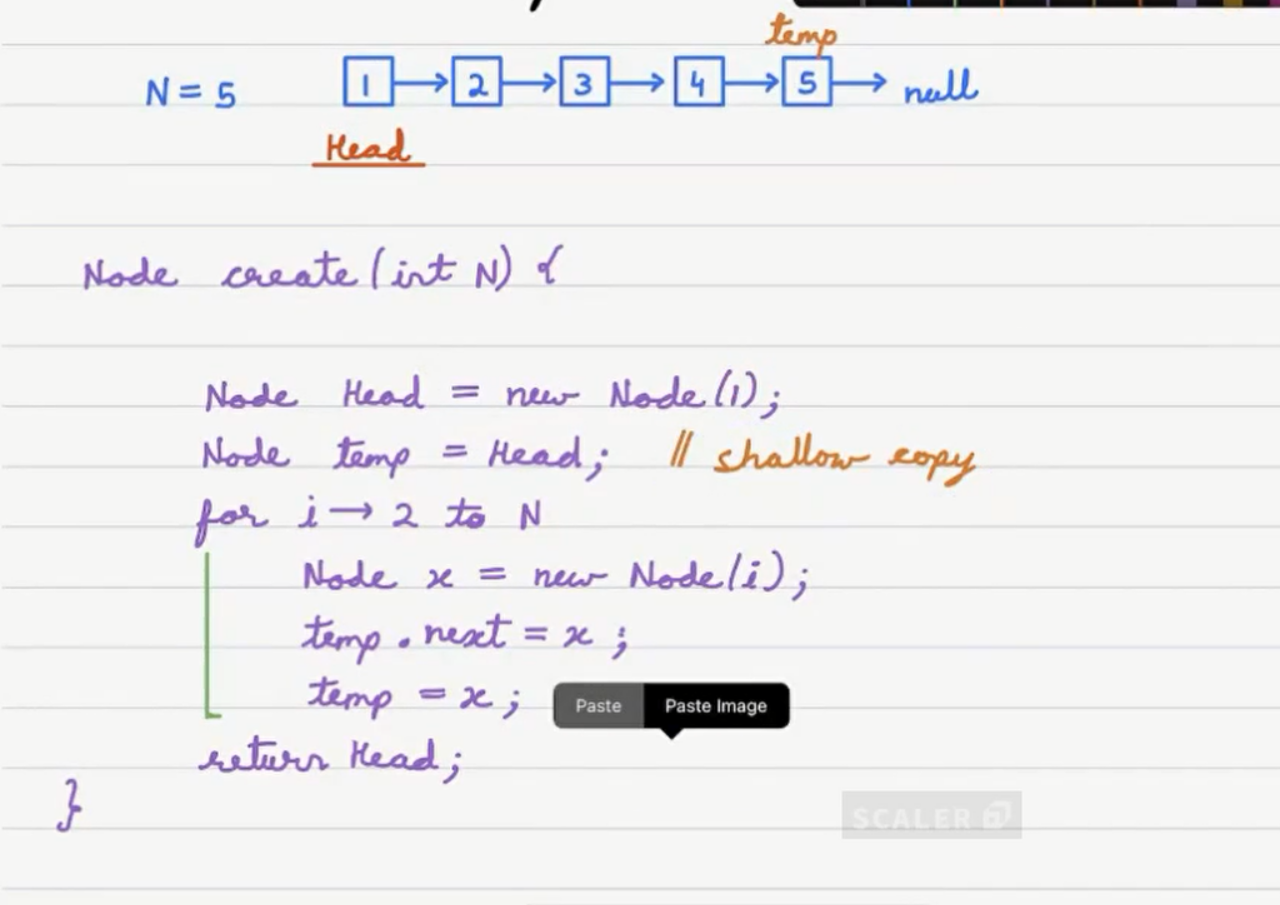 temp
N = 5 1 → 2 → 3 → 4 → 5 → null
Head
Node create(int N) {
Node Head = new Node(1);
Node temp = Head; // shallow copy
for i → 2 to N
Node x = new Node(i);
temp.next = x;
temp = x; Paste Paste Image
return Head;
}
SCALER